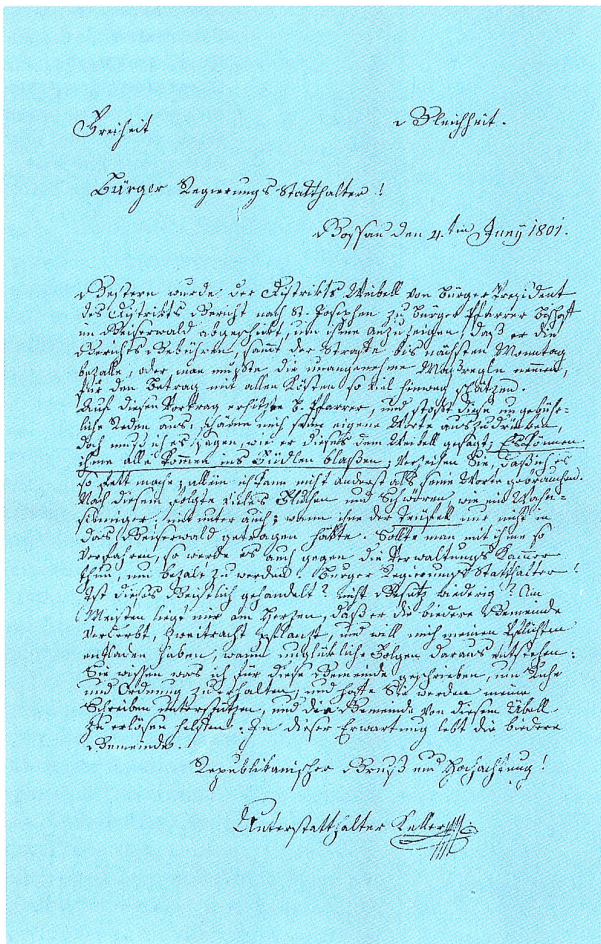 Freiheit Gleichheit.
Bürger Regierungs Statthalter!
Gossau den 4.ten Junÿ 1801.
Gestern wurde der Distrikts Weibell von Bürger President
des Distrikts Gericht nach St. Josephen zu Bürger Pfarrer Bischoff
im Geiserwald abgeschikt, um ihme anzuzeigen, daß er die
Gerichts Gebühren, sammt der Straffe bis nächsten Montag
bezalle, oder man müßte die unangenehme Maßregln nemmen,
für den Betrag mit allen Kösten so viel hinweg schätzen.
Auf diesen Vortrag erhitzte B. Pfarrer, und stoßt diese ungebühr-
liche Reden aus, schämme mich seine eigene Worte auszudrüken,
doch muß ich es sagen, wie er dieses dem Weibell gesagt; Sie können
ihme alle kommen ins Füdlen blaßen; verzeihen Sie, daß ich es
so fett mache, allein ich kann nicht anderst als seine Worte gebrauchen.
Nach diesem folgte vieles Fluchen und Schwören, wie ein Wahn-
sinniger, mit unter auch; wann ihn der Teüfell nur nicht in
das Geiserwald getragen hätte. Sollte man mit ihme so
verfahren, so werde er auch gegen die Verwaltungs Kammer
thun, um bezalt zu werden. Bürger Regierungs Statthalter!
Ist dieses Geistlich gehandelt? nicht Gesätz wiederig? Am
Meisten liegt mir am Herzen, daß er die biedere Gemeinde
verderbt, Zweitracht pflanzt, und will mich meiner Pflichten
entladen haben, wann unglükliche Folgen daraus entstehen.
Sie wissen was ich für diese Gemeinde geschrieben, um Ruhe
und Ordnung zu erhalten, und hoffe Sie werden meine
Schreiben unterstützen, und die Gemeinde von diesem Übell
zu erlösen helffen. In dieser Erwartung lebt die biedere
Gemeinde.
Republikanischer Gruß und Hochachtung!
Unterstatthalter Keller